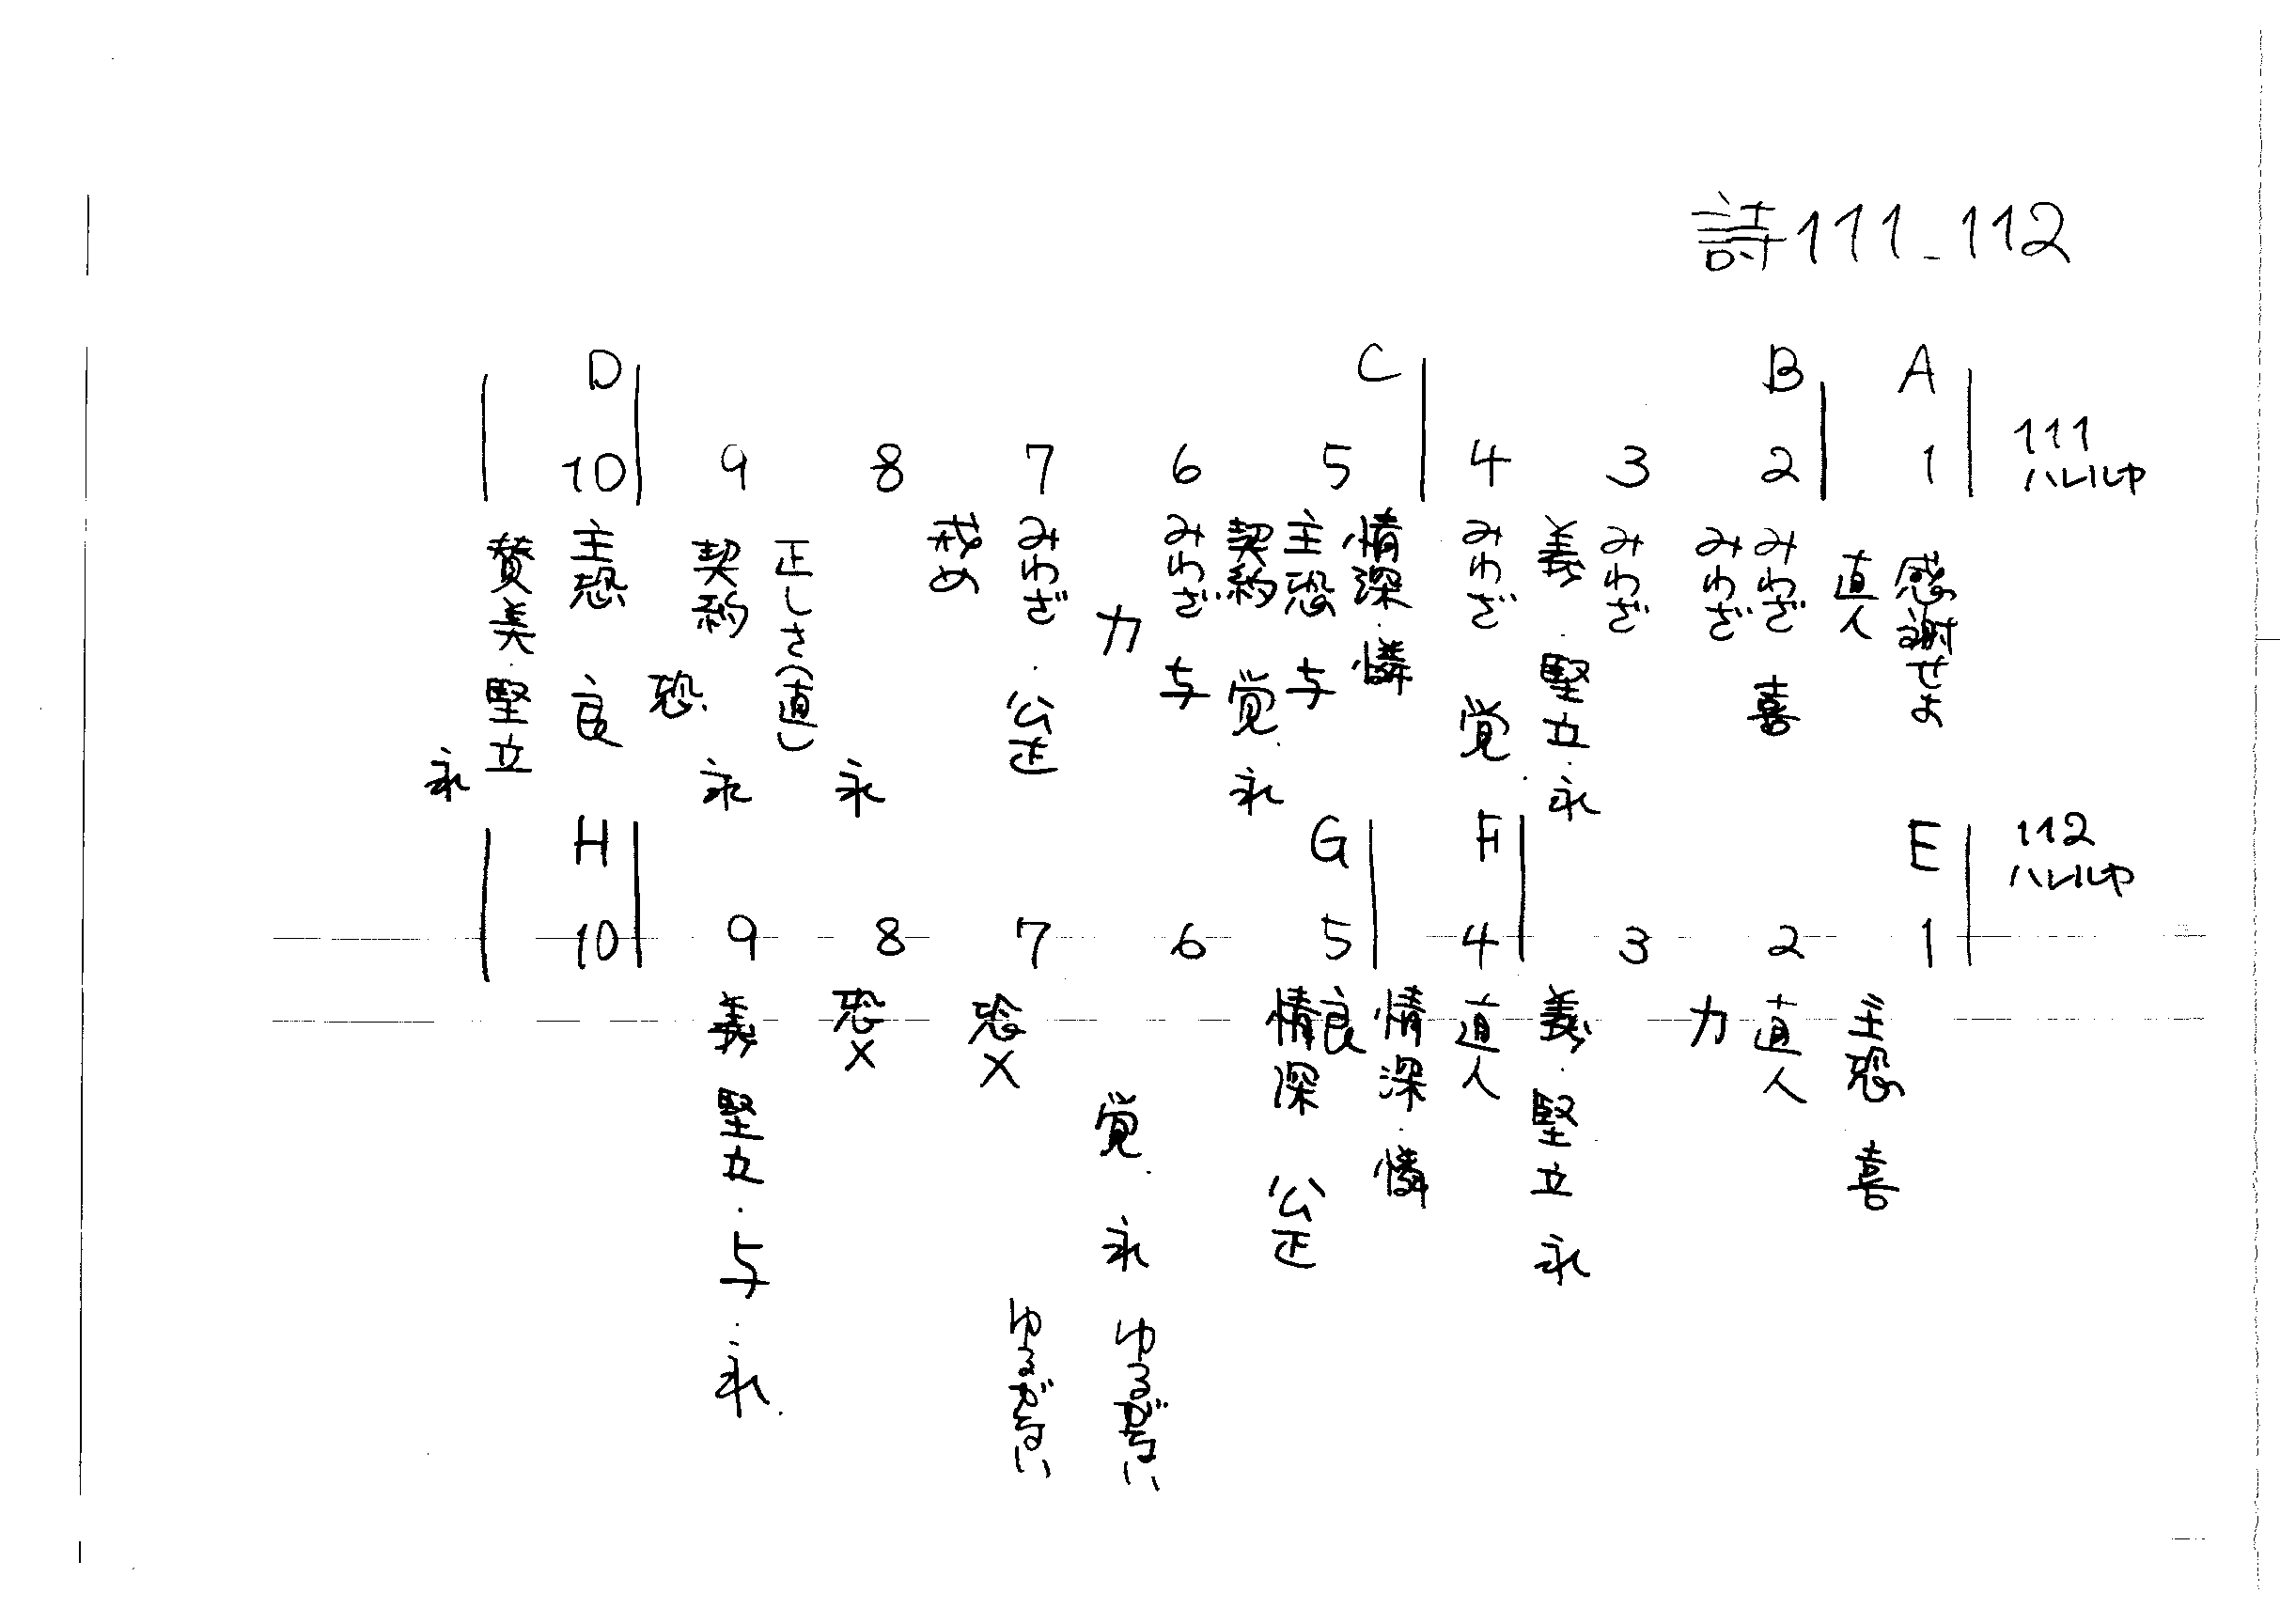 詩111-112
111
ハレルヤ
A
1
感謝せよ
直人
B
2
みわざ 喜
みわざ
3
みわざ
義・堅立・永
4
みわざ 覚
C
情深・憐
5
主恐 与
契約 覚・永
6
みわざ 与
力
7
みわざ・公正
戒め
8
永
正しさ(直し)
9
契約 永
恐
D
10
主恐 良
賛美・堅立
永
112
ハレルヤ
E
1
主恐 喜
2
直人
力
3
義・堅立 永
F
4
直人
情深・憐
G
5
良
情深 公正
6
覚・永 ゆるがない
7
ゆるがない
恐×
8
恐×
9
義 堅立・与・永
H
10